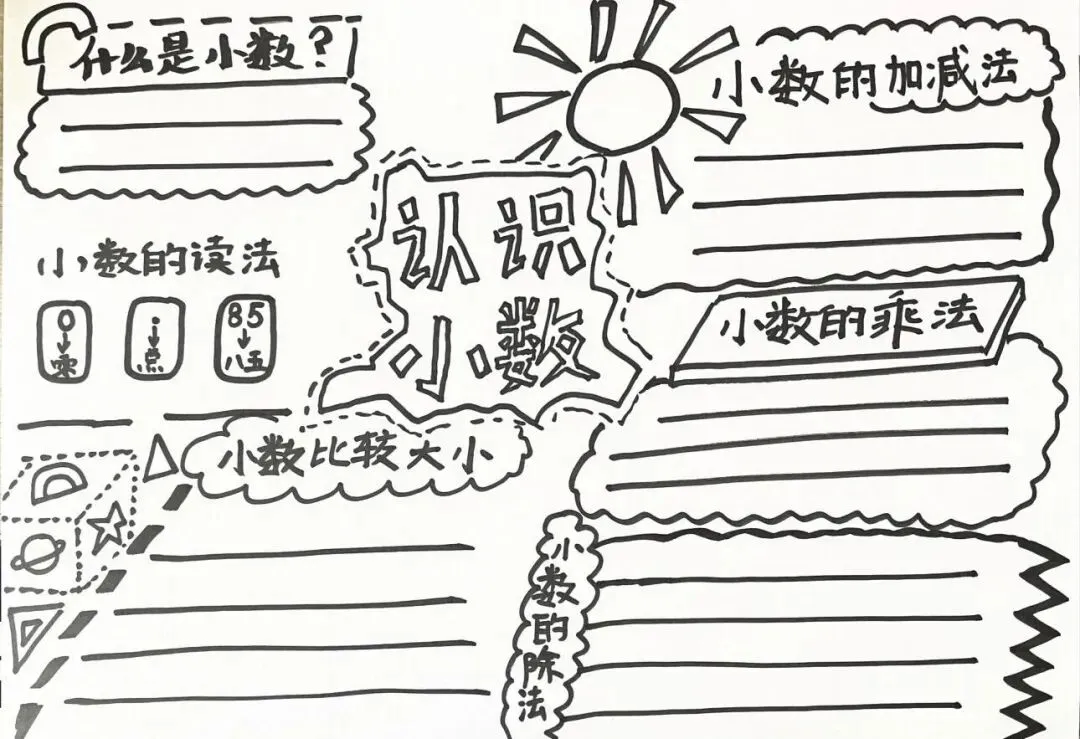 什么是小数?
小数的加减法
认识
小数
小数的读法
0 · 85
零 点 八五
小数的乘法
小数比较大小
小数的除法